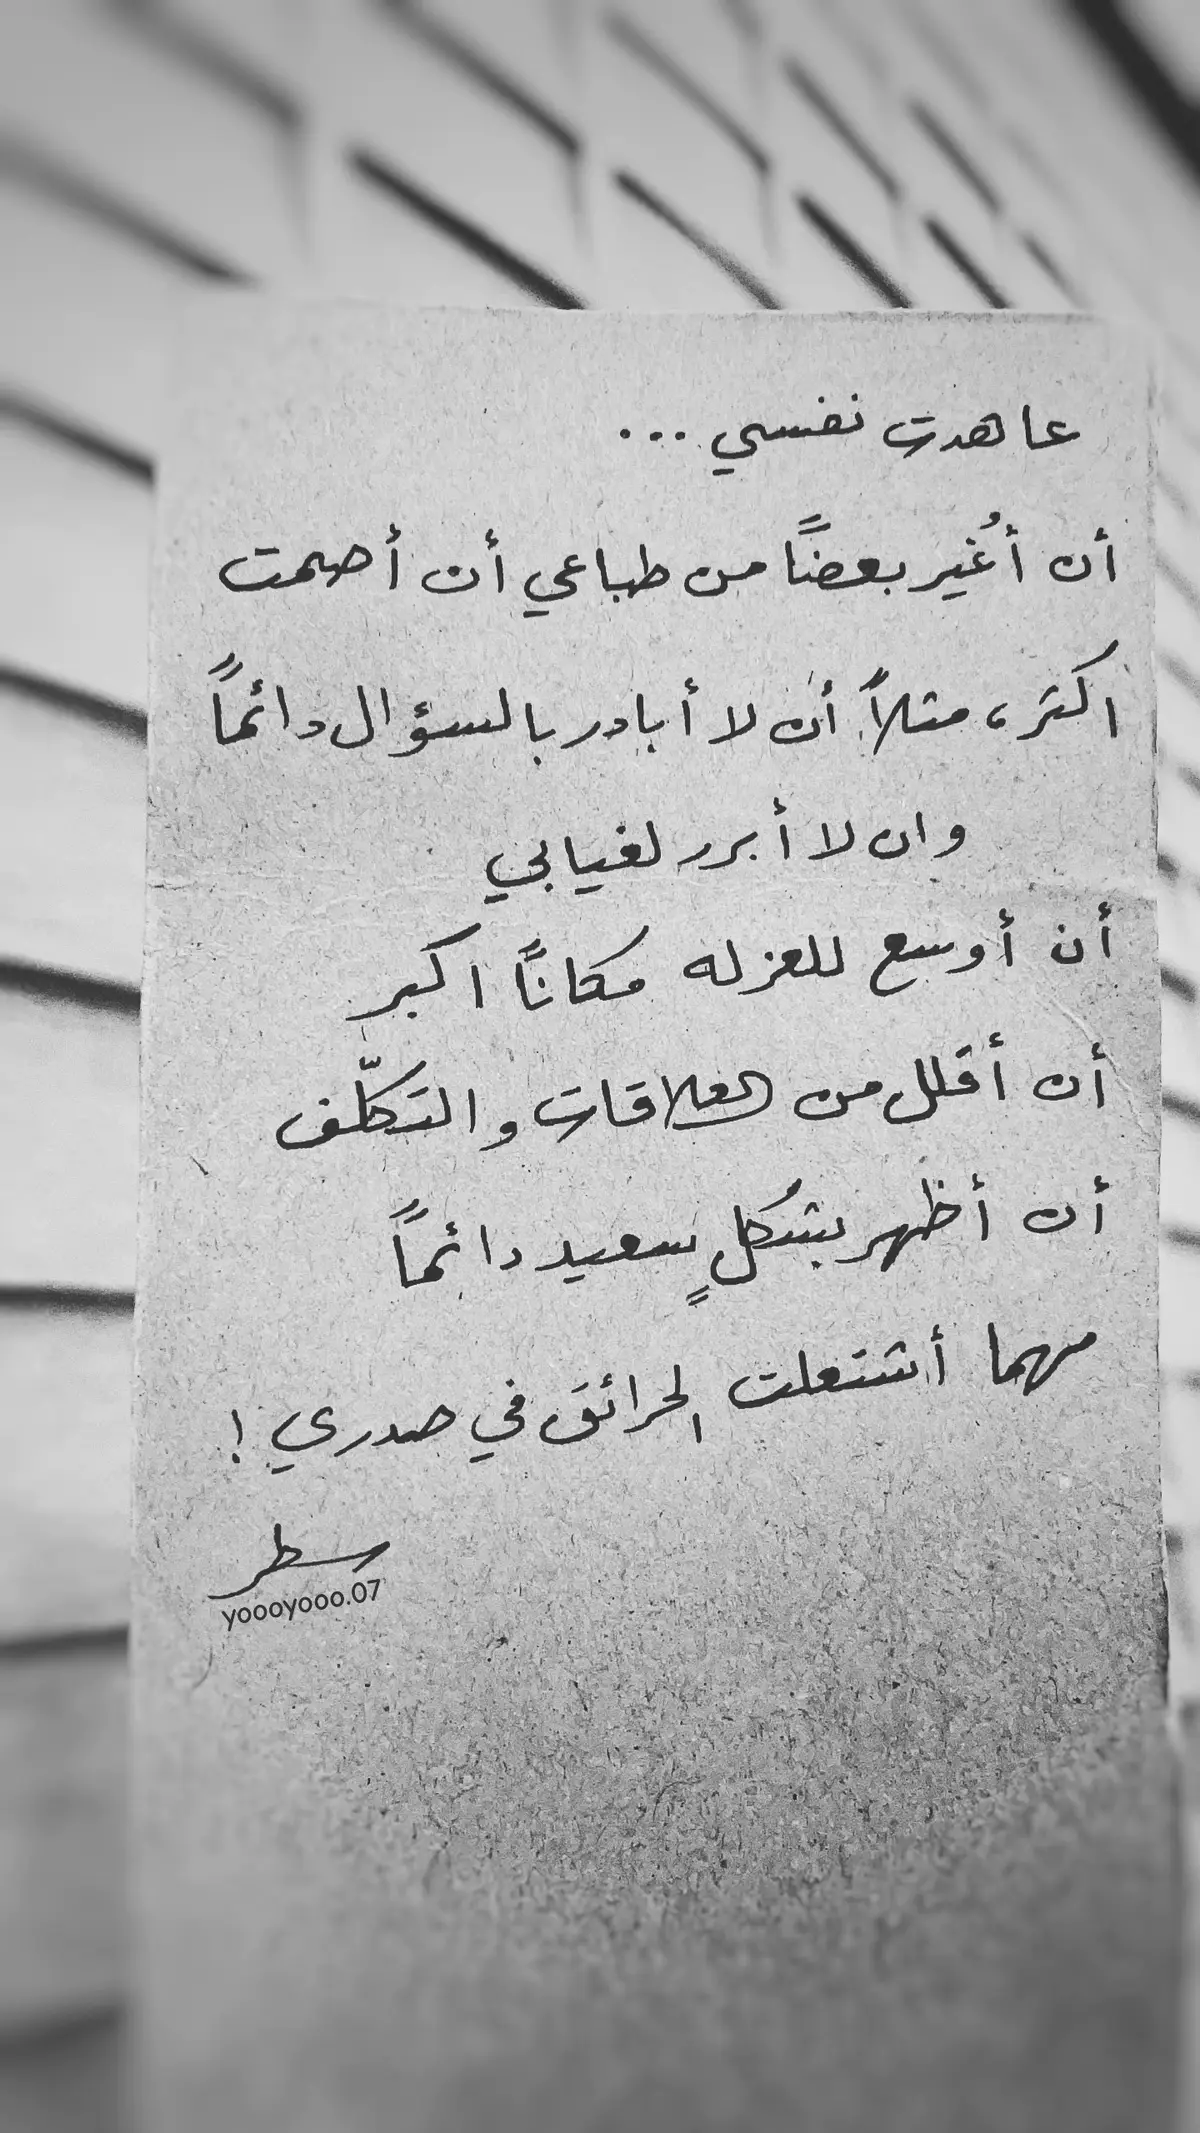 عاهدت نفسي ...
أن أُغير بعضاً من طباعي أن أصمت
اكثر، مثلاً أن لا أبادر بالسؤال دائماً
وان لا أبرر لغيابي
أن أوسع للعزله مكاناً اكبر
أن أقلل من العلاقات والتكلّف
أن أظهر بشكلٍ سعيد دائماً
مهما أشتعلت الحرائق في صدري !
سطر
yoooyooo.07